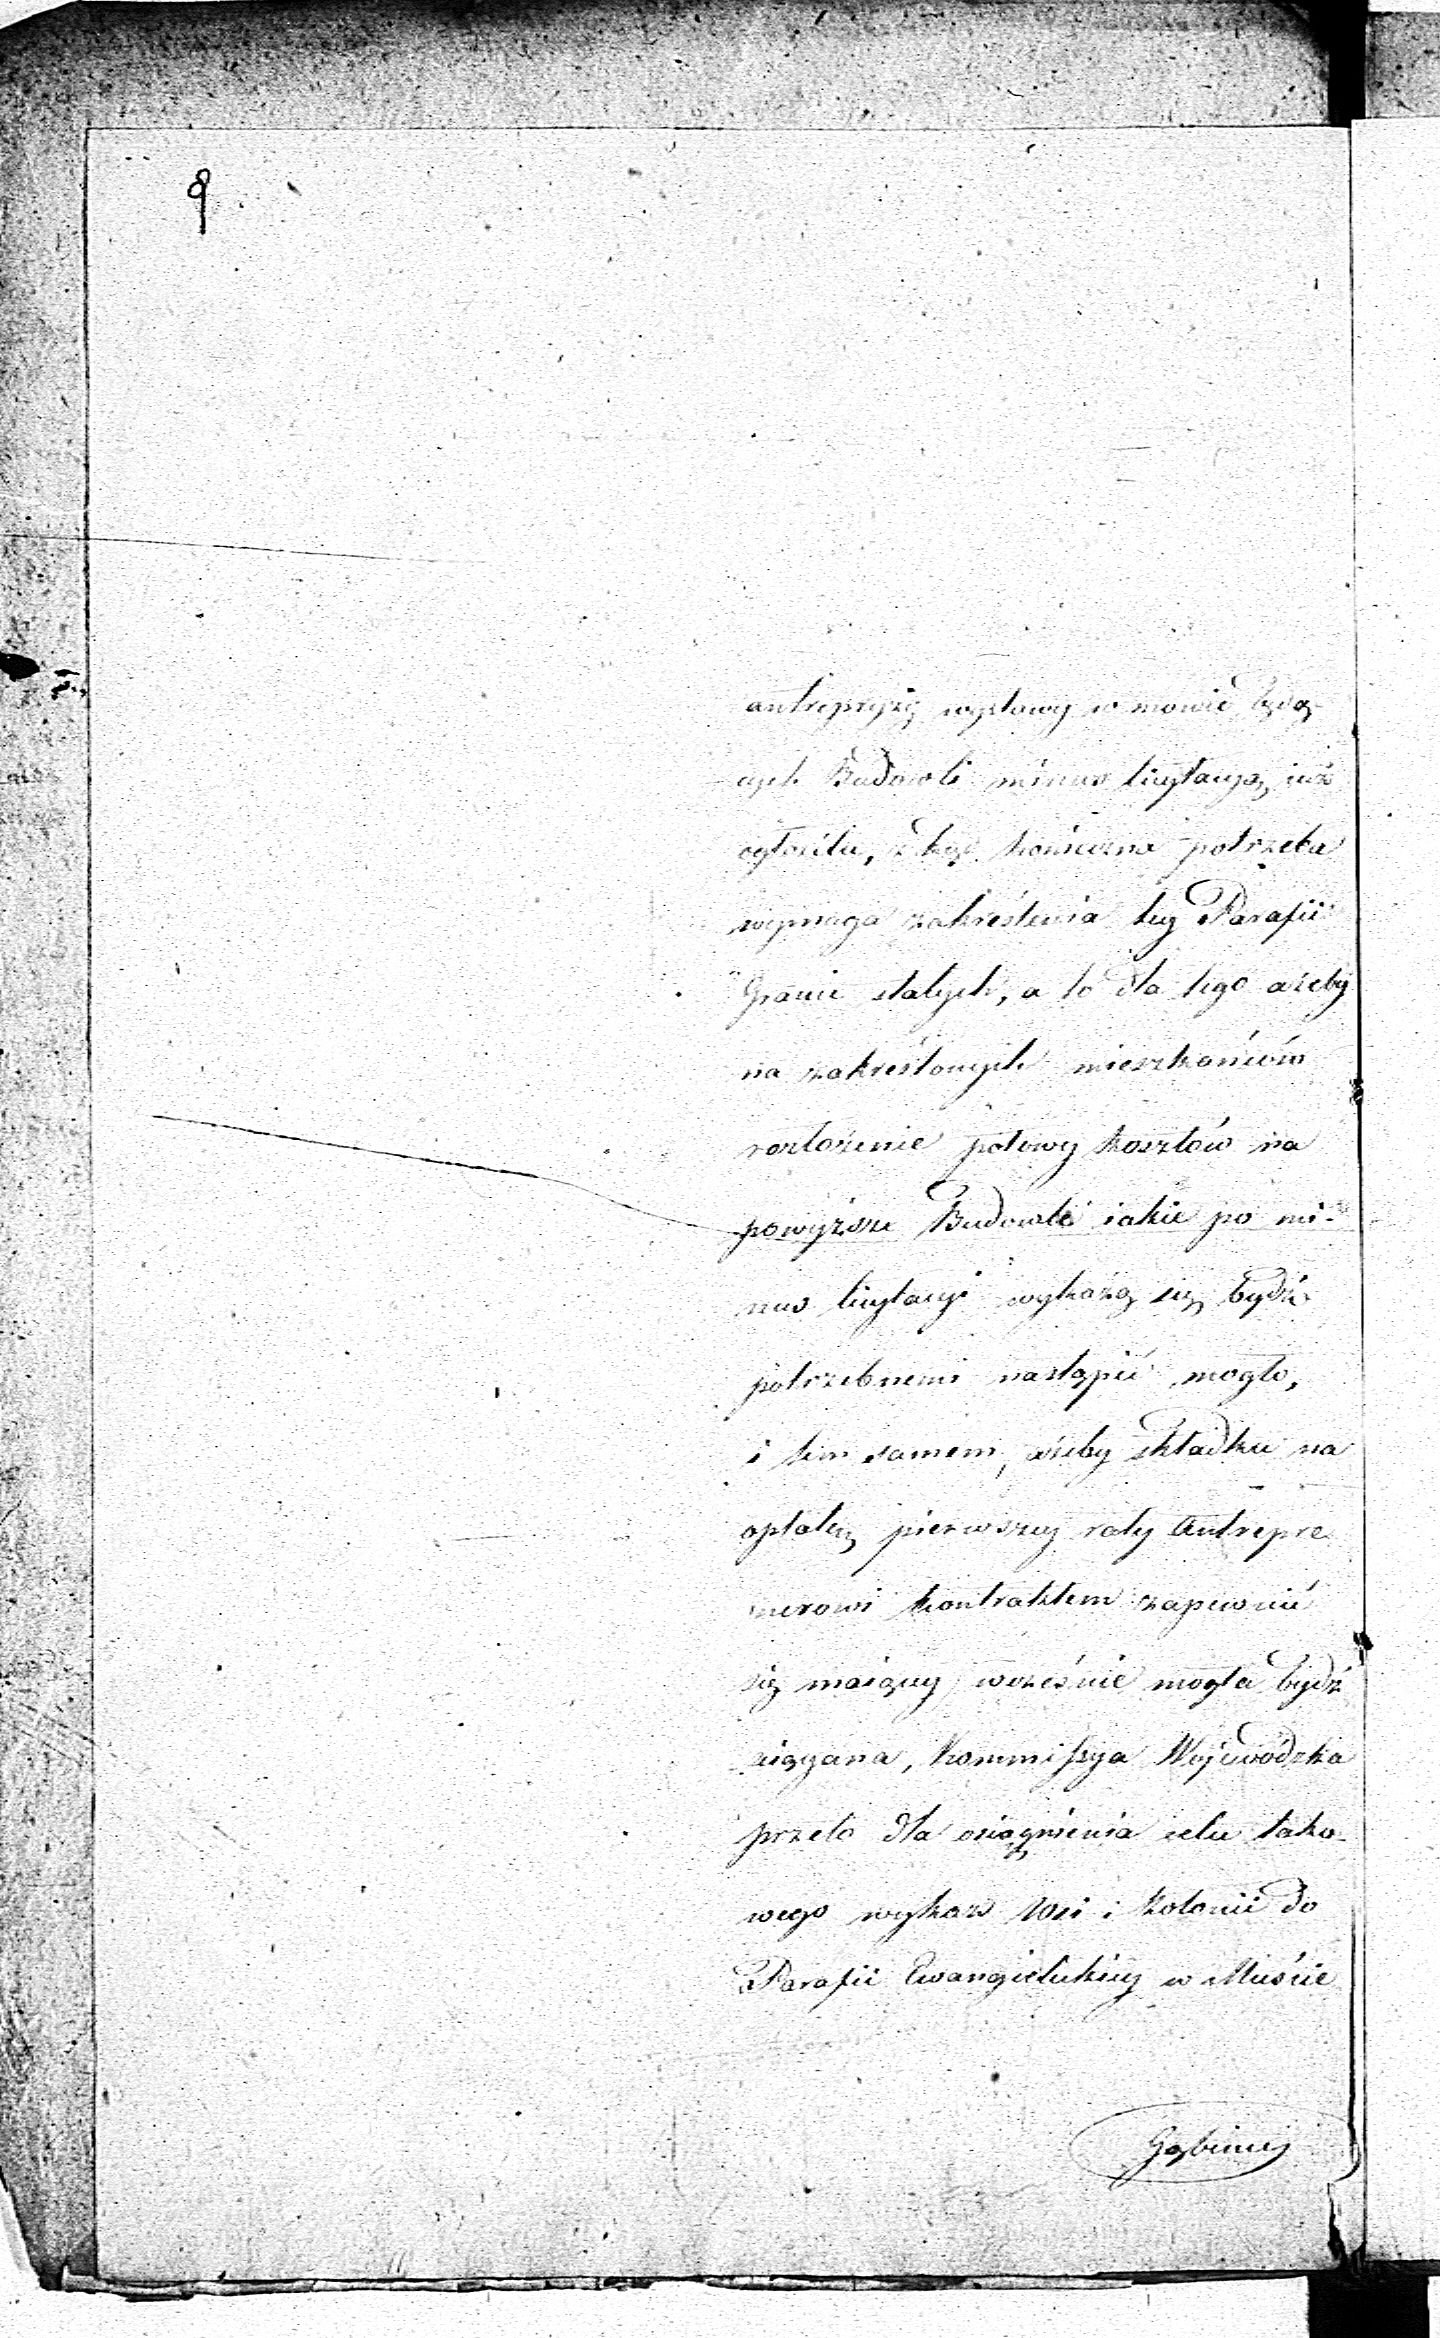 antrepryzę wystawy w mowie będą-
cych Budowli minus licytacyą iuż
ogłosiła, z kąd konieczna potrzeba
wymaga zakreślenia tey Parafii
Granic stałych, a to dla tego ażeby
na zakreślonych mieszkańców
rozłożenie połowy kosztów na
powyższe Budowle iakie po mi-
nus licytacyi wykażą się bydź
potrzebnemi nastąpić mogło,
i tem samem, ażeby składka na
opłatę pierwszey raty Antrepre
nerowi kontraktem zapewnić
się maiącey, wcześnie mogła bydź
ściągana, Kommissya Wojewódzka
przeto dla osiągnienia celu tako-
wego wykaz wsi i kolonii do
Parafii Ewangielickiey w Mieście
Gąbinie